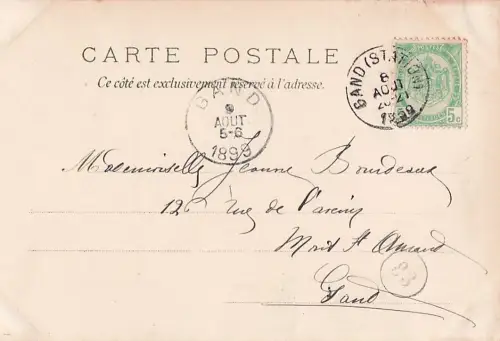 CARTE POSTALE
Ce côté est exclusivement réservé à l'adresse.
GAND (STATION)
8
AOUT
20-21
1899
5c
GAND
9
AOUT
5-6
1899
Mademoiselle Jeanne Bourdeaux
12 Rue de
Mont St Amand
Gand
83